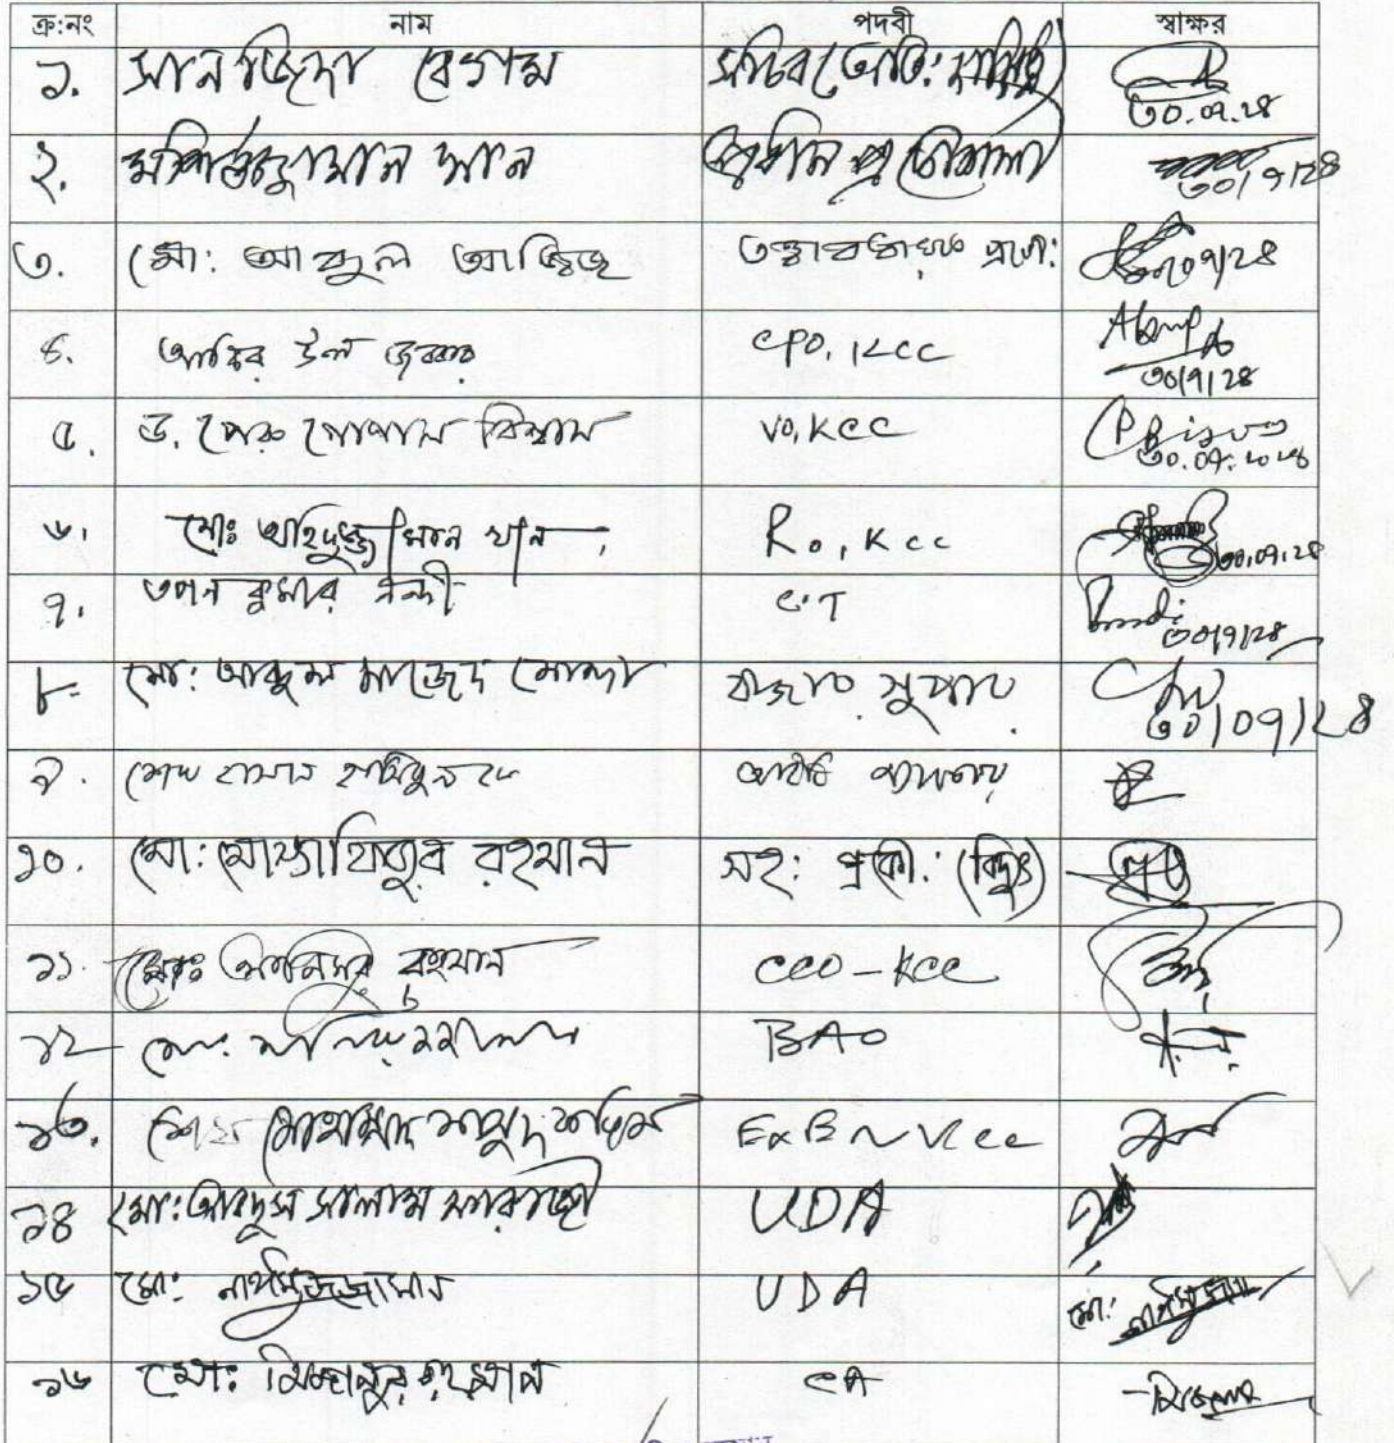 ক্র:নং নাম পদবী স্বাক্ষর
১. সানজিদা বেগম সচিব (অতি: দায়িত্ব) ৩০.০৯.২৪
২. মশিউজ্জামান খান প্রধান প্রকৌশলী ৩০/৯/২৪
৩. মো: আব্দুল আজিজ তত্ত্বাবধায়ক প্রকৌ: ৩০/০৯/২৪
৪. আবির উল জব্বার CPO, KCC ৩০/৯/২৪
৫. ড. পেরু গোপাল বিশ্বাস VO, KCC ৩০.০৯.২০২৪
৬. মোঃ অহিদুজ্জামান খান RO, KCC ৩০.০৯.২৪
৭. তপন কুমার নন্দী CT ৩০/৯/২৪
৮. মো: আব্দুল মাজেদ মোল্লা বাজার সুপার ৩০/০৯/২৪
৯. শেখ হাসান হাসিবুল হক আইটি ম্যানেজার
১০. মো: মোস্তাফিজুর রহমান সহ: প্রকৌ: (বিদ্যুৎ)
১১. মোঃ আনিসুর রহমান CCO-KCC
১২ মো: BAO
১৩. শেখ মোহাম্মদ মাসুদ করিম ExEN KCC
১৪ মো: আবদুস সালাম ফরাজী UDA
১৫ মো: UDA মো:
১৬ মোঃ মিজানুর রহমান CA মিজানুর